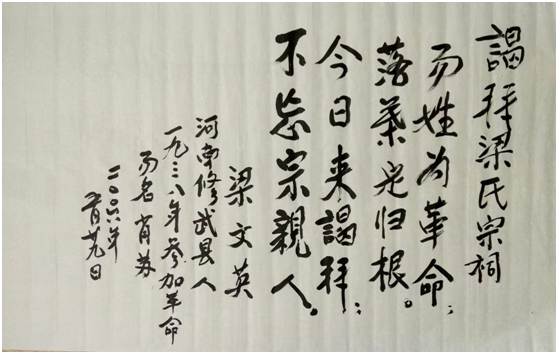 謁拜梁氏宗祠
易姓为革命;
落葉定归根。
今日来謁拜;
不忘宗親人。
梁文英
河南修武县人
一九三八年参加革命
易名肖苏
二00六年
月廿九日